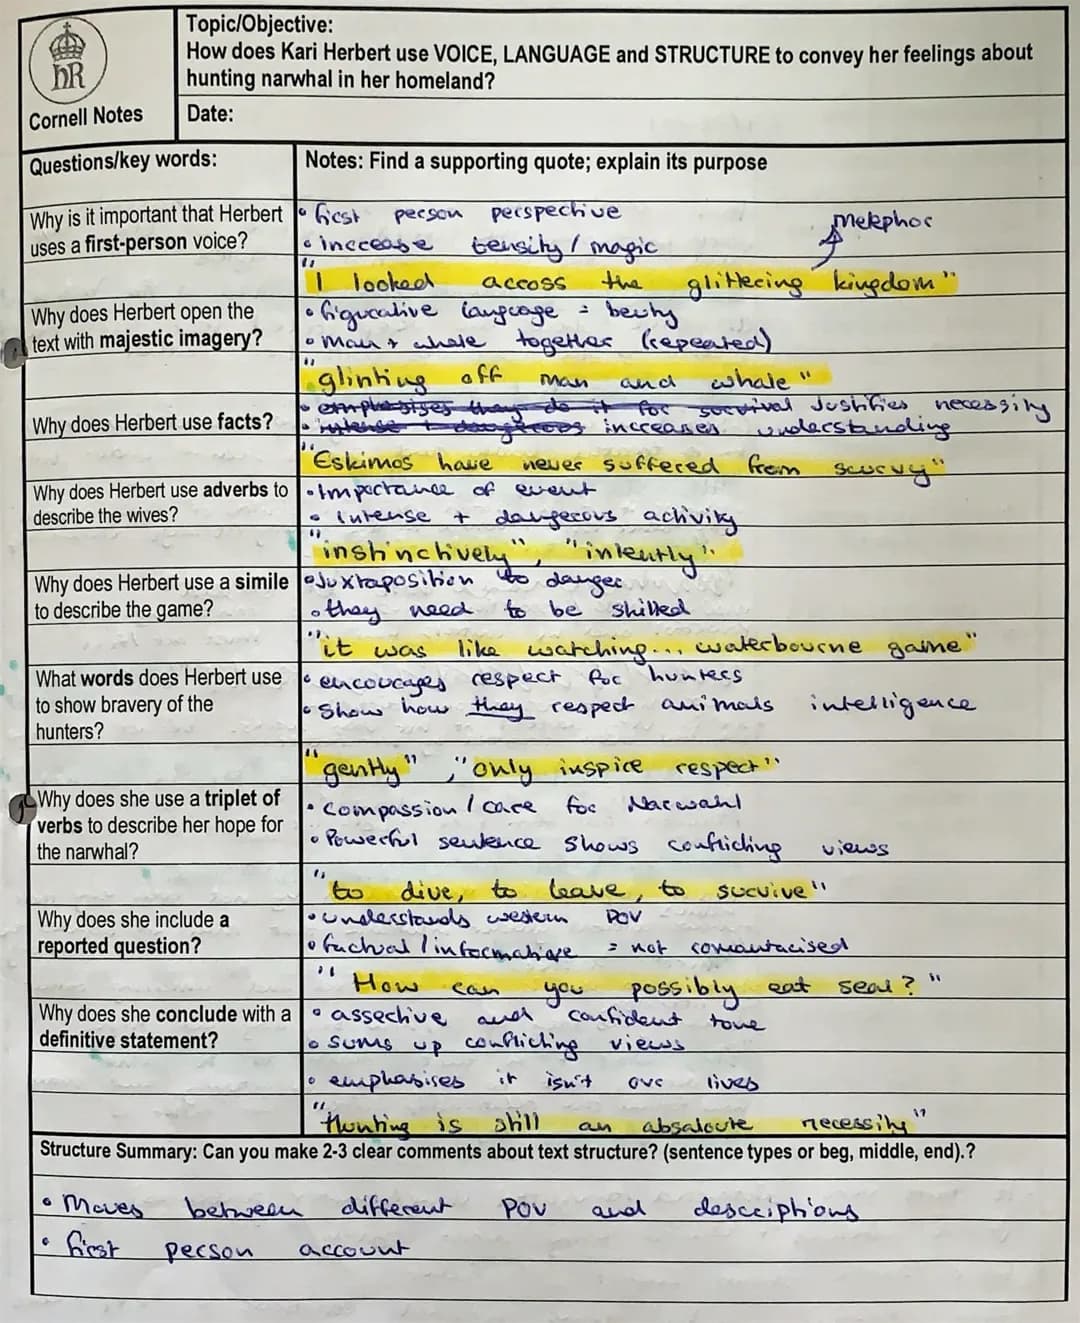 Topic/Objective:
How does Kari Herbert use VOICE, LANGUAGE and STRUCTURE to convey her feelings about
hunting narwhal in her homeland?
hR
Cornell Notes
Date:
Questions/key words:
Notes: Find a supporting quote; explain its purpose
Why is it important that Herbert
uses a first-person voice?
• first person perspective
• increase tensity / magic
Metephor
"I looked across the glittering kingdom"
Why does Herbert open the
text with majestic imagery?
• figurative language = beuty
• man + whale together (repeated)
"glinting off man and whale"
Why does Herbert use facts?
• emphasises they do it for survival Justifies necessity
• intense + dangerous increases understanding
"Eskimos have never suffered from scurvy"
Why does Herbert use adverbs to
describe the wives?
• Importance of event
• Intense + dangerous activity
"instinctively", "intently"
Why does Herbert use a simile
to describe the game?
• Juxtaposition to danger
• they need to be skilled
"it was like watching... waterbourne game"
What words does Herbert use
to show bravery of the
hunters?
• encourages respect for hunters
• Show how they respect animals intelligence
"gently", "only inspire respect"
Why does she use a triplet of
verbs to describe her hope for
the narwhal?
• Compassion / care for Narwahl
• Powerful sentence shows conflicting views
"to dive, to leave, to survive"
Why does she include a
reported question?
• understands western POV
• factual / informative = not romantacised
"How can you possibly eat seal?"
Why does she conclude with a
definitive statement?
• assertive and confident tone
• sums up conflicting views
• emphasises it isn't our lives
"Hunting is still an absaloute necessity"
Structure Summary: Can you make 2-3 clear comments about text structure? (sentence types or beg, middle, end).?
• Moves between different POV and descriptions
• first person account